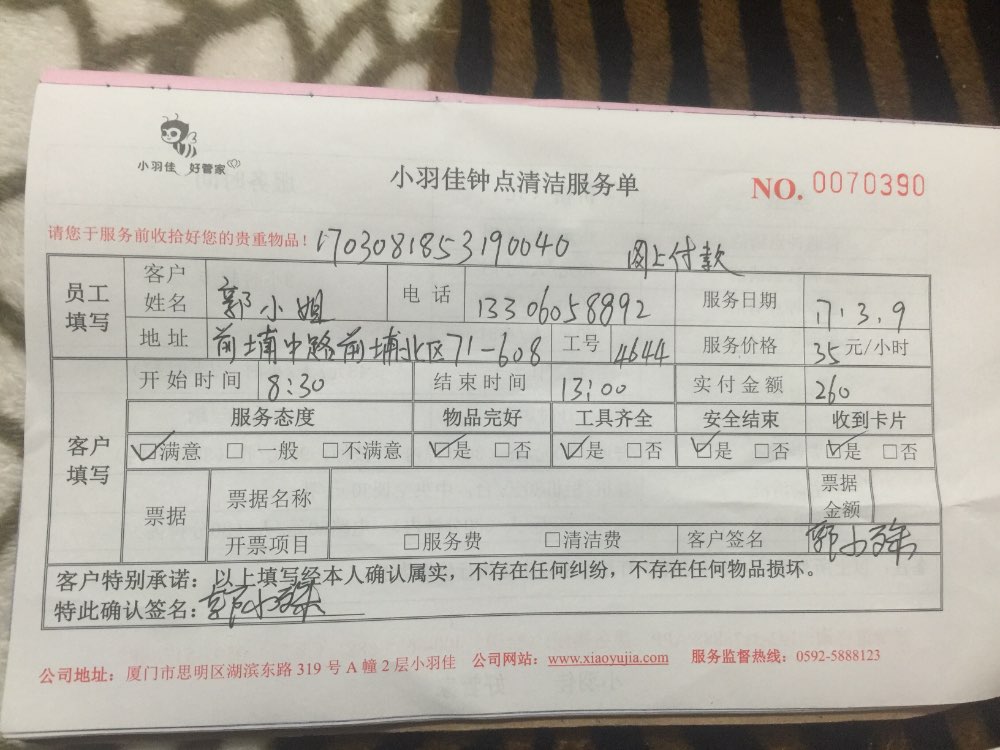 小羽佳 好管家
小羽佳钟点清洁服务单
NO. 0070390
请您于服务前收拾好您的贵重物品！ 170308185319 0040 网上付款
员工填写 客户姓名 郭小姐 电话 13306058892 服务日期 17.3.9
地址 前埔中路前埔北区71-608 工号 4644 服务价格 35元/小时
客户填写 开始时间 8:30 结束时间 13:00 实付金额 260
服务态度 物品完好 工具齐全 安全结束 收到卡片
☑满意 □一般 □不满意 ☑是 □否 ☑是 □否 ☑是 □否 ☑是 □否
票据 票据名称 票据金额
开票项目 □服务费 □清洁费 客户签名 郭小
客户特别承诺：以上填写经本人确认属实，不存在任何纠纷，不存在任何物品损坏。
特此确认签名：郭小
公司地址：厦门市思明区湖滨东路319号A幢2层小羽佳 公司网站：www.xiaoyujia.com 服务监督热线：0592-5888123